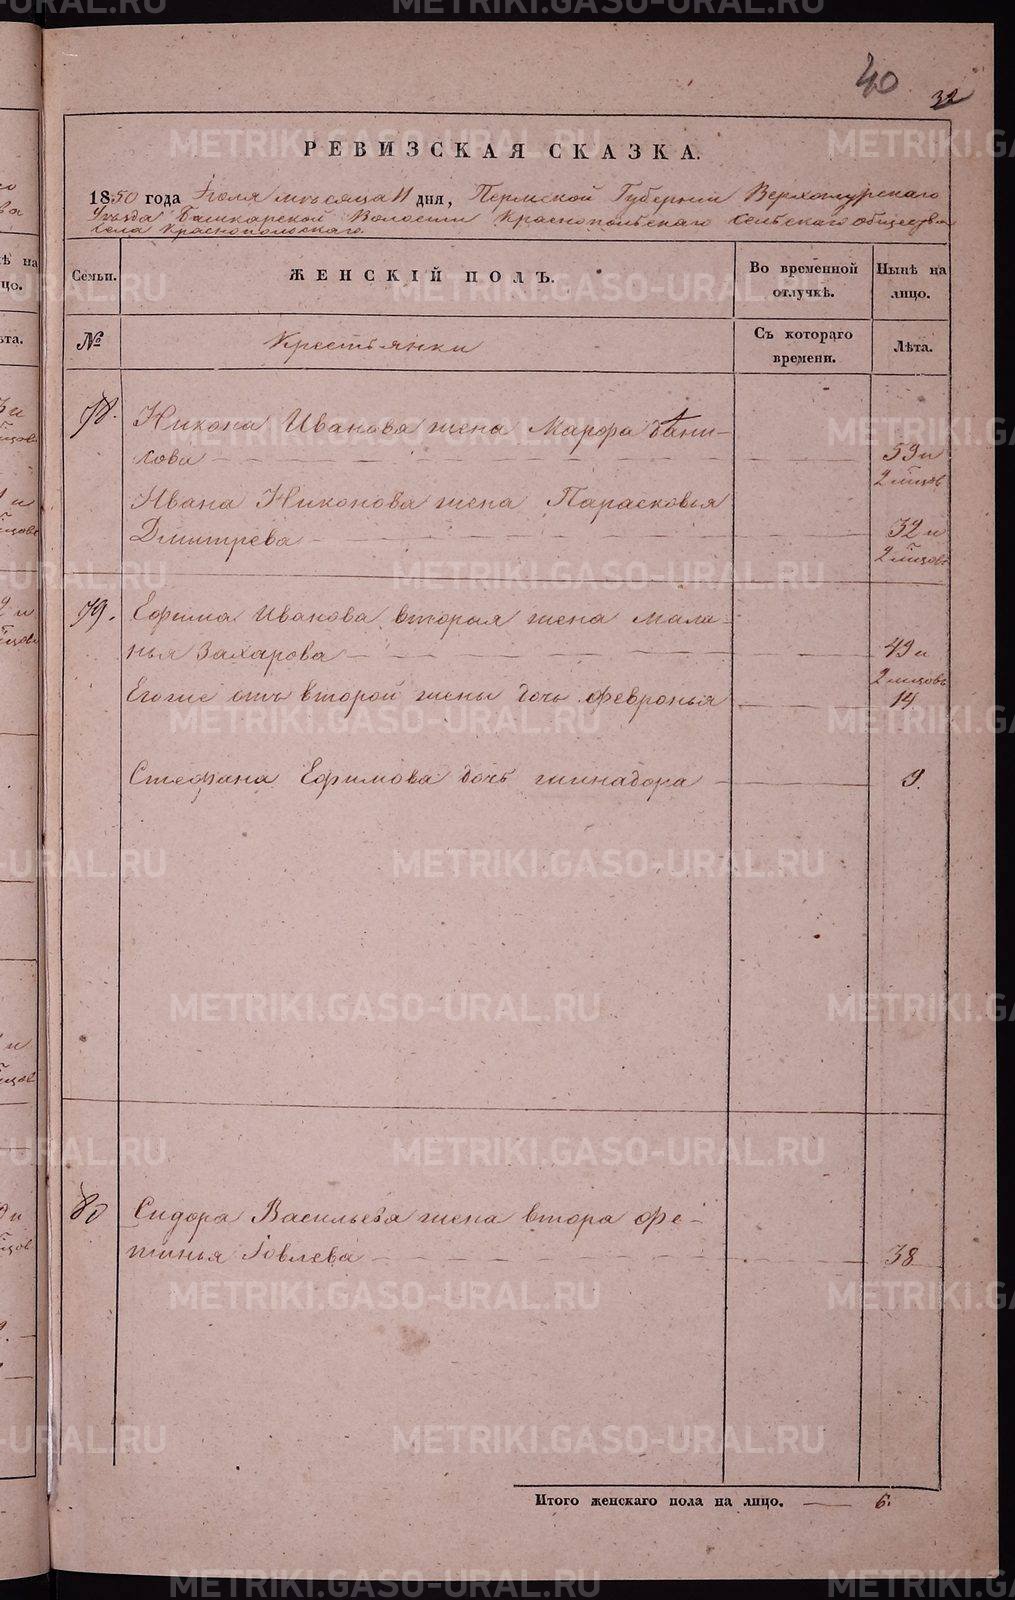 40
32
РЕВИЗСКАЯ СКАЗКА.
1850 года Іюля мѣсяца 11 дня, Пермской Губерніи Верхотурскаго
Уѣзда Башкарской Волости Краснопольскаго сельскаго общества
села Краснопольскаго.
Семьи.
ЖЕНСКІЙ ПОЛЪ.
Во временной
отлучкѣ.
Нынѣ на
лицо.
№
Крестьянки
Съ котораго
времени.
Лѣта.
78.
Никона Иванова жена Марфа Дани-
лова
59 и
2 мцовъ
Ивана Никонова жена Парасковья
Дмитрева
32 и
2 мцовъ
79.
Ефима Иванова вторая жена Мала-
нья Захарова
49 и
2 мцовъ
Егоже отъ второй жены дочь Февронья
14
Стефана Ефимова дочь
9.
80
Сидора Васильева жена втора Фе-
тинья
38
Итого женскаго пола на лицо.
6.
METRIKI.GASO-URAL.RU